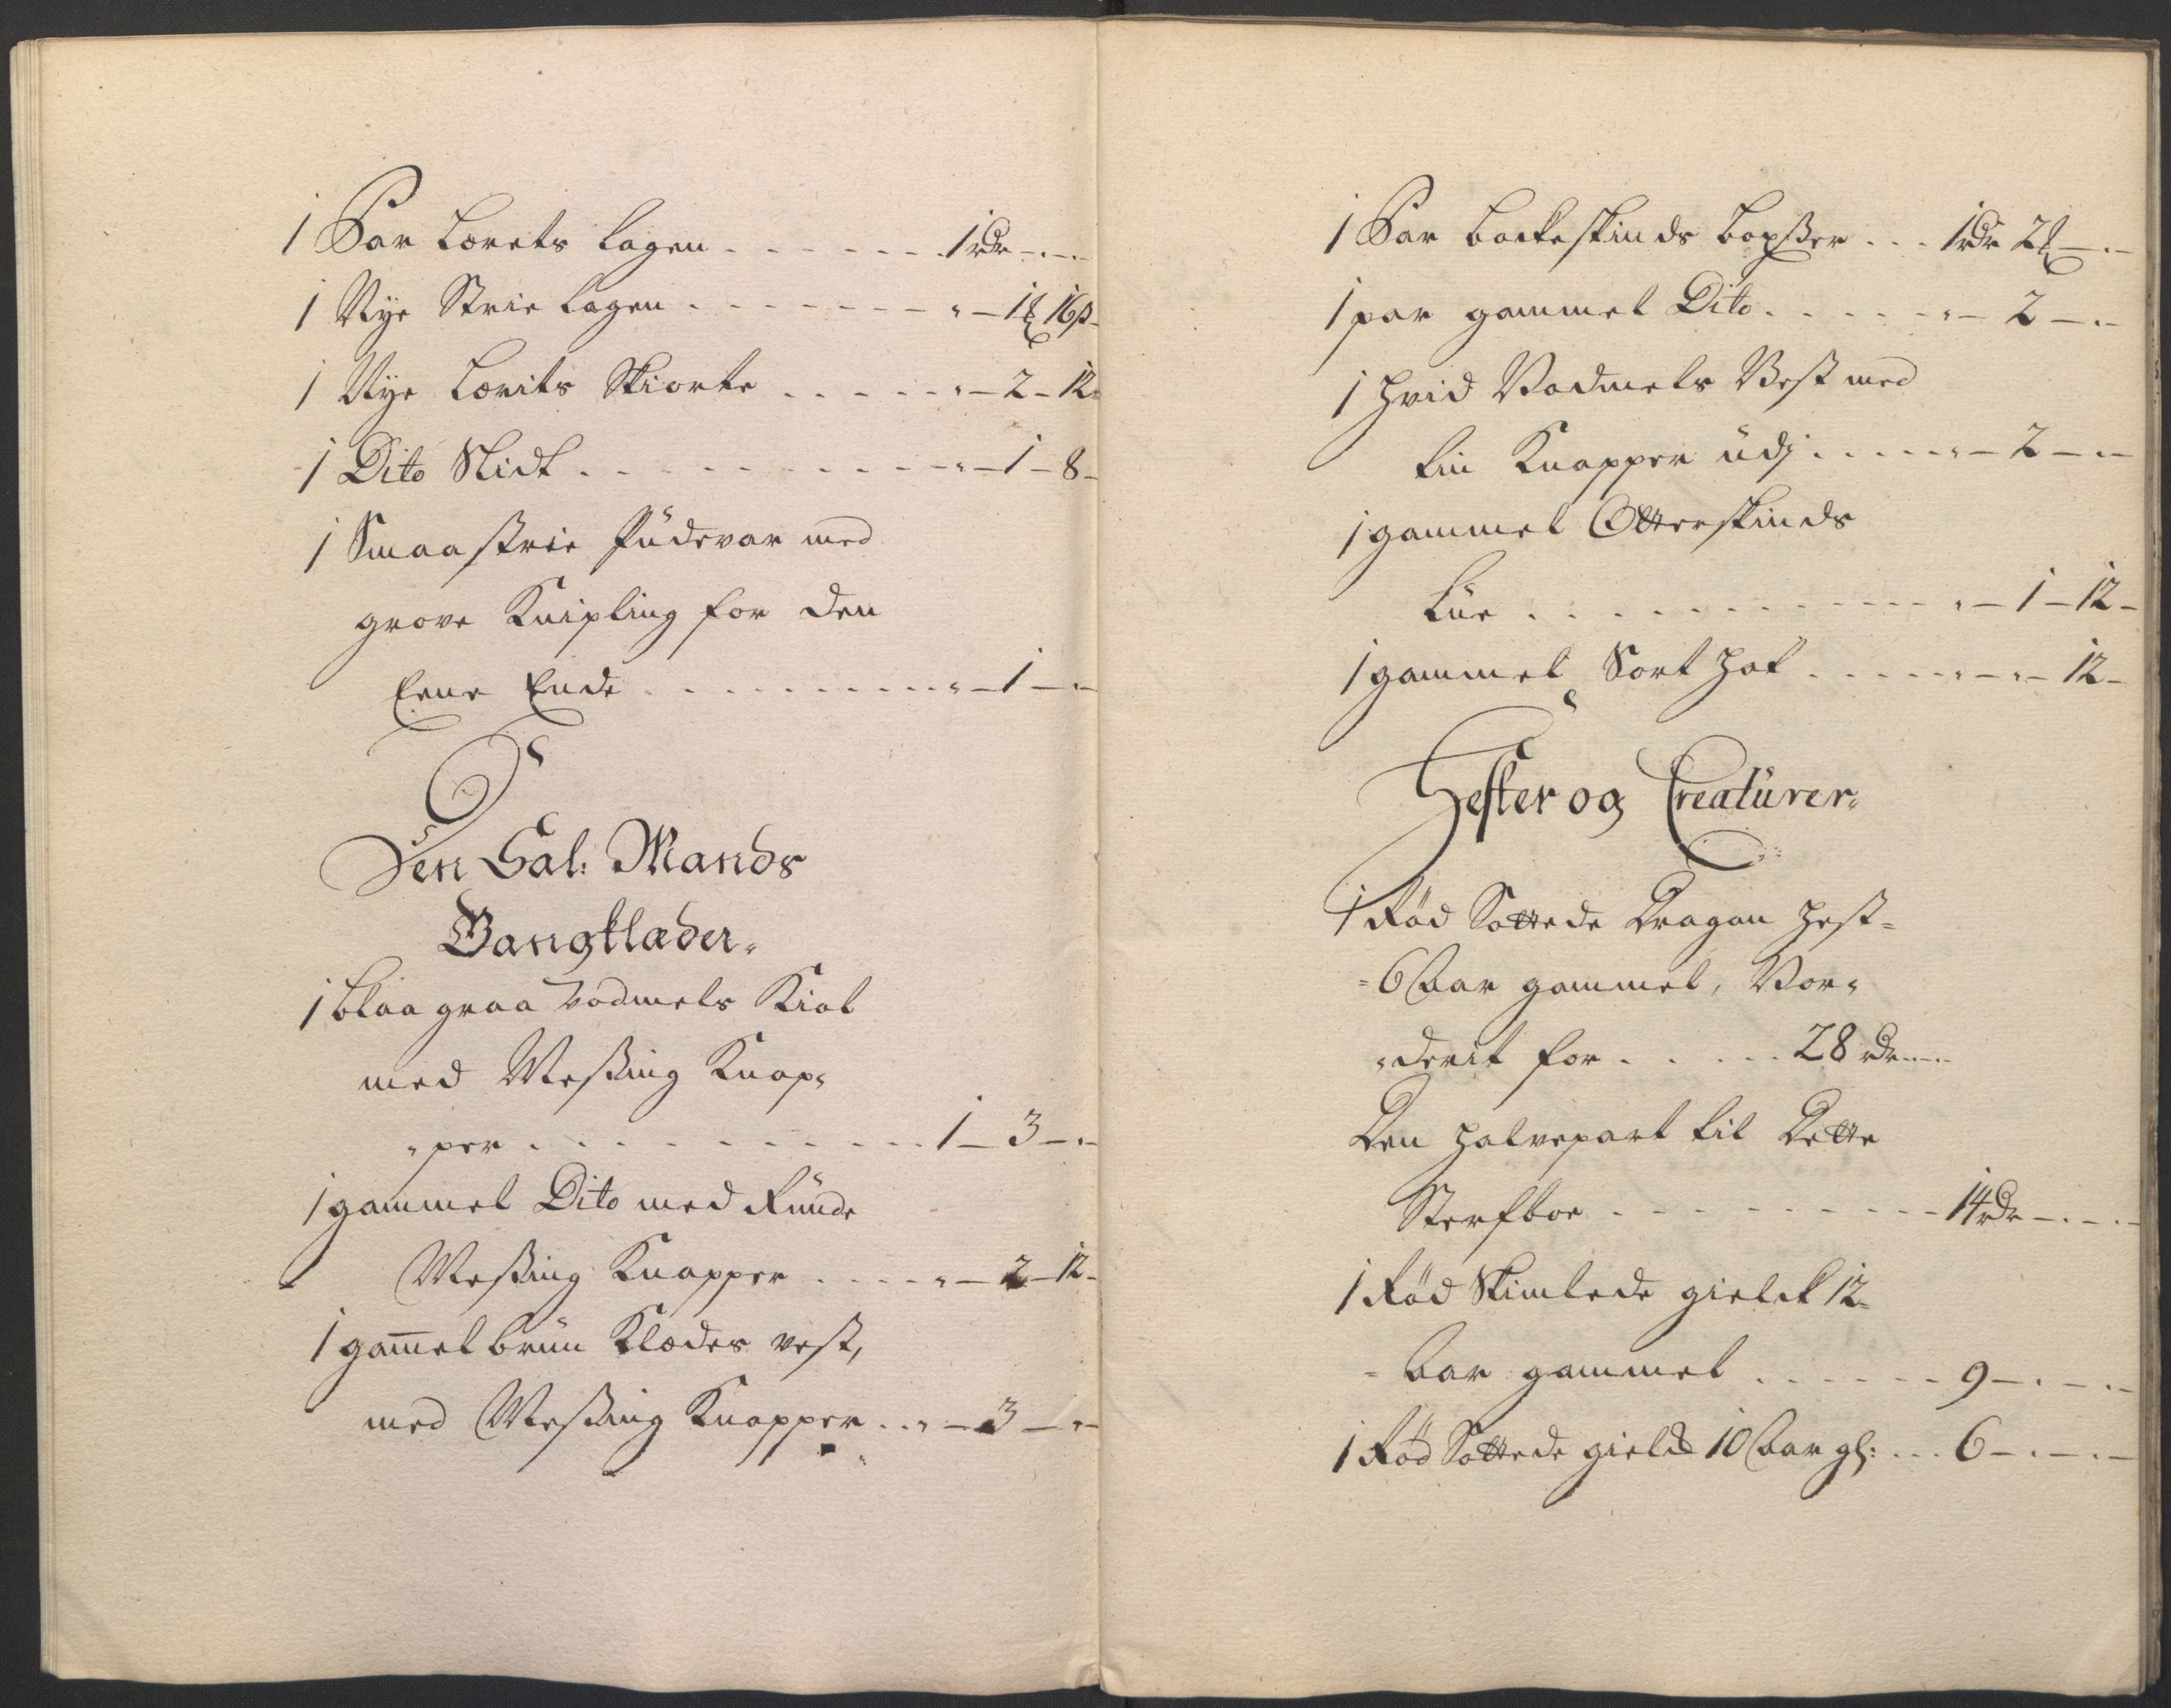 1 Par Lærets lagen . . . . . . . 1 rdr - . -
1 Nye Strie lagen . . . . . . . " - 1 16 ß -
1 Nye Lærits Skiorte . . . . . " - 2 - 12
1 Dito Slidt . . . . . . . . . . " - 1 - 8 -
1 Smaa strie Püdevar med
grove Knipling for den
Eene Ende . . . . . . . . . " - 1 - " -
Den Sal: Mands
Gangklæder.
1 blaa graa Vadmels Kiol
med Messing Knap-
"per . . . . . . . . . . . 1 - 3 - " -
1 gammel Dito med Runde
Messing Knapper . . . . " - 2 - 12 -
1 gam̄el brün Klædes vest,
med Messing Knapper . . " - 3 - " -
1 Par bockeskinds boxser . . . 1 rdr 2 - . -
1 par gammel Dito . . . . . " - 2 - . -
1 hvid Vadmels Vest med
tin Knapper üdj . . . . . " - 2 - " -
1 gammel Otterskinds
Lüe . . . . . . . . . . . " - 1 - 12 -
1 gammel Sort hat . . . . . " - " - 12 -
Hester og Creatürer.
1 Rød Sottede Dragon hest=
=6 Aar gammel, Vor-
"derit for . . . . . . 28 rdr - . -
Den halvepart til Dette
Sterfboe . . . . . . . . . 14 rdr - . - . -
1 Rød Skimlede gield 12=
=Aar gammel . . . . . . 9 - . - . -
1 Rød Sottede gield 10 Aar gl: . . . 6 - . - . -